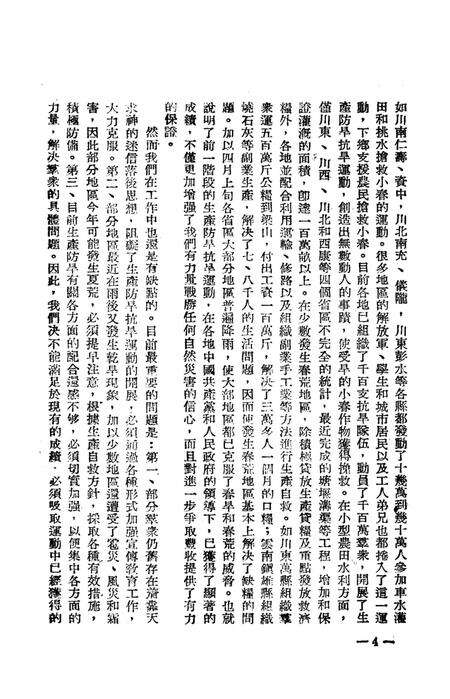 如川南仁壽、資中，川北南充、儀隴，川東彭水等各縣都發動了十幾萬到幾十萬人參加車水灌
田和挑水搶救小春的運動。很多地區的解放軍、學生和城市居民以及工人弟兄也都捲入了這一運
動，下鄉支援農民搶救小春。目前各地已組織了千百支抗旱隊伍，動員了千百萬羣衆，開展了生
產防旱抗旱運動，創造出無數動人的事蹟，使受旱的小春作物獲得搶救。在小型農田水利方面，
僅川東、川西、川北和西康等四個省區不完全的統計，最近完成的塘堰溝渠等工程，增加和保
證灌溉的面積，卽達一百萬畝以上。在少數發生春荒地區，除積極貸放生產貸糧及重點發放救濟
糧外，各地並配合利用運輸、修路以及組織副業手工業等方法進行生產自救。如川東萬縣組織羣
衆運五百萬斤公糧到梁山，付出工資一百萬斤，解決了三萬多人一個月的口糧；雲南鎮雄縣組織
燒石灰等副業生產，解決了七、八千人的生活問題，因而使發生春荒地區基本上解決了缺糧的問
題。加以四月上旬各省區大部分地區普遍降雨，使大部地區都已克服了春旱和春荒的威脅。也就
說明了前一階段的生產防旱抗旱運動，在各地中國共產黨和人民政府的領導下，已獲得了顯著的
成績，不僅更加增强了我們有力量戰勝任何自然災害的信心，而且對進一步爭取豐收提供了有力
的保證。
然而我們在工作中也還是有缺點的。目前最重要的問題是：第一、部分羣衆仍舊存在着靠天
求神的迷信落後思想，阻礙了生產防旱抗旱運動的開展，必須通過各種形式加强宣傳敎育工作，
大力克服。第二、部分地區最近在雨後又發生乾旱現象，加以少數地區還遭受了雹災、風災和霜
害，因此部分地區今年可能發生夏荒，必須提早注意，根據生產自救方針，採取各種有效措施，
積極防備。第三、目前生產防旱有關各方面的配合還感不够，必須切實加强，以便集中各方面的
力量，解決羣衆的具體問題。因此，我們決不能滿足於現有的成績，必須吸取運動中已經獲得的
—4—